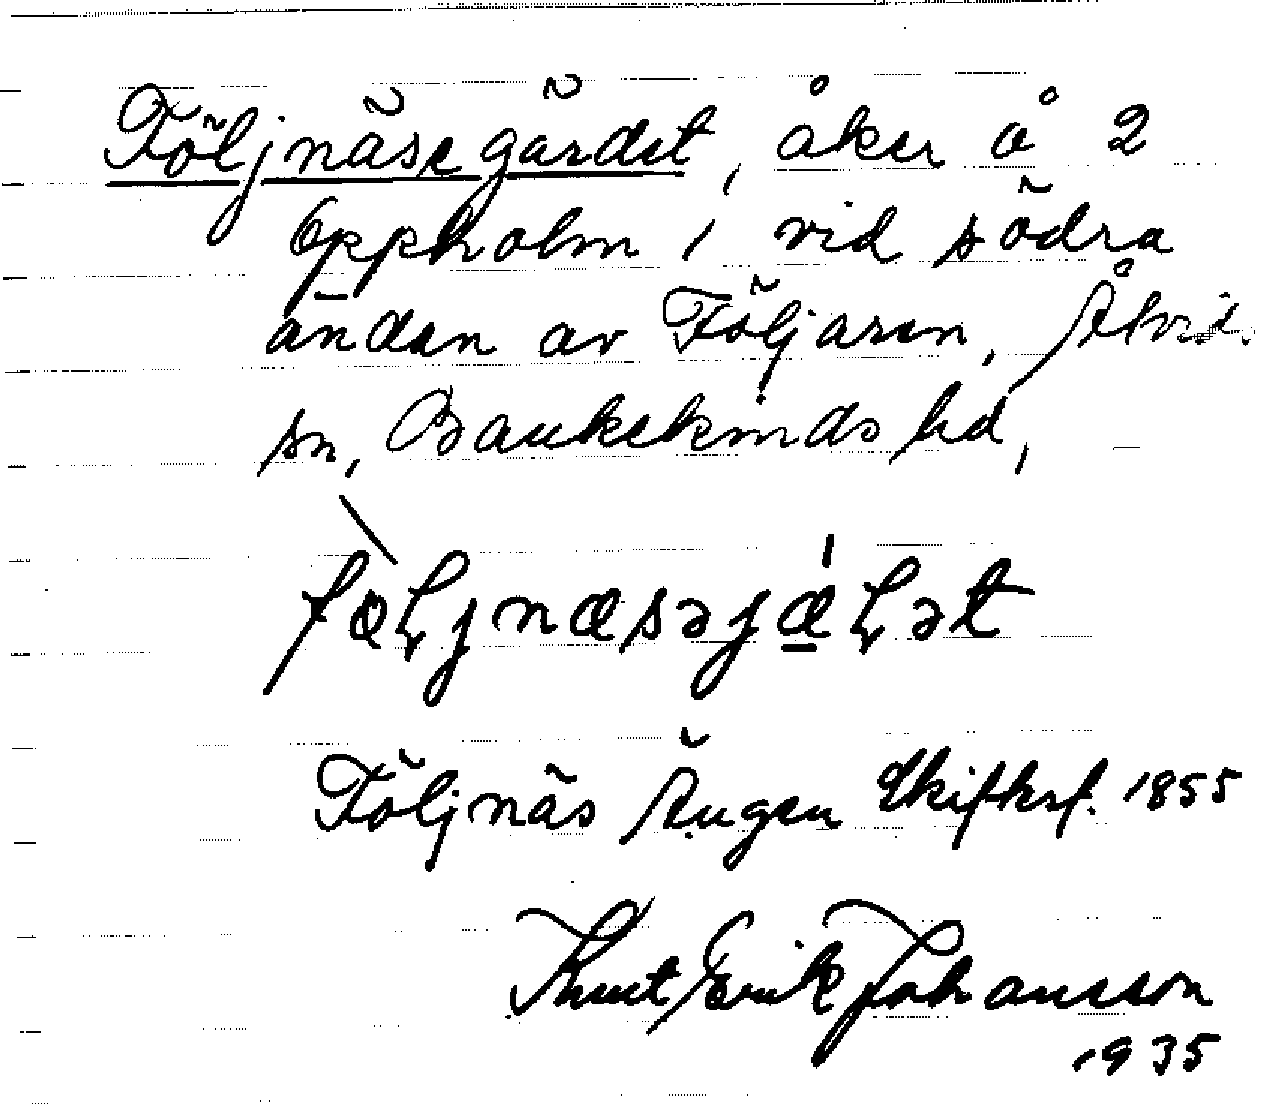 Följnäsegärdet, åker å 2
Eppholm, vid södra
änden av Följaren, Åtvid.
sn, Bankekinds hd,
fæļjnæsəjæļət
Följnäs Ängen Skifteskrf. 1855
Knut Erik Johansson
1935